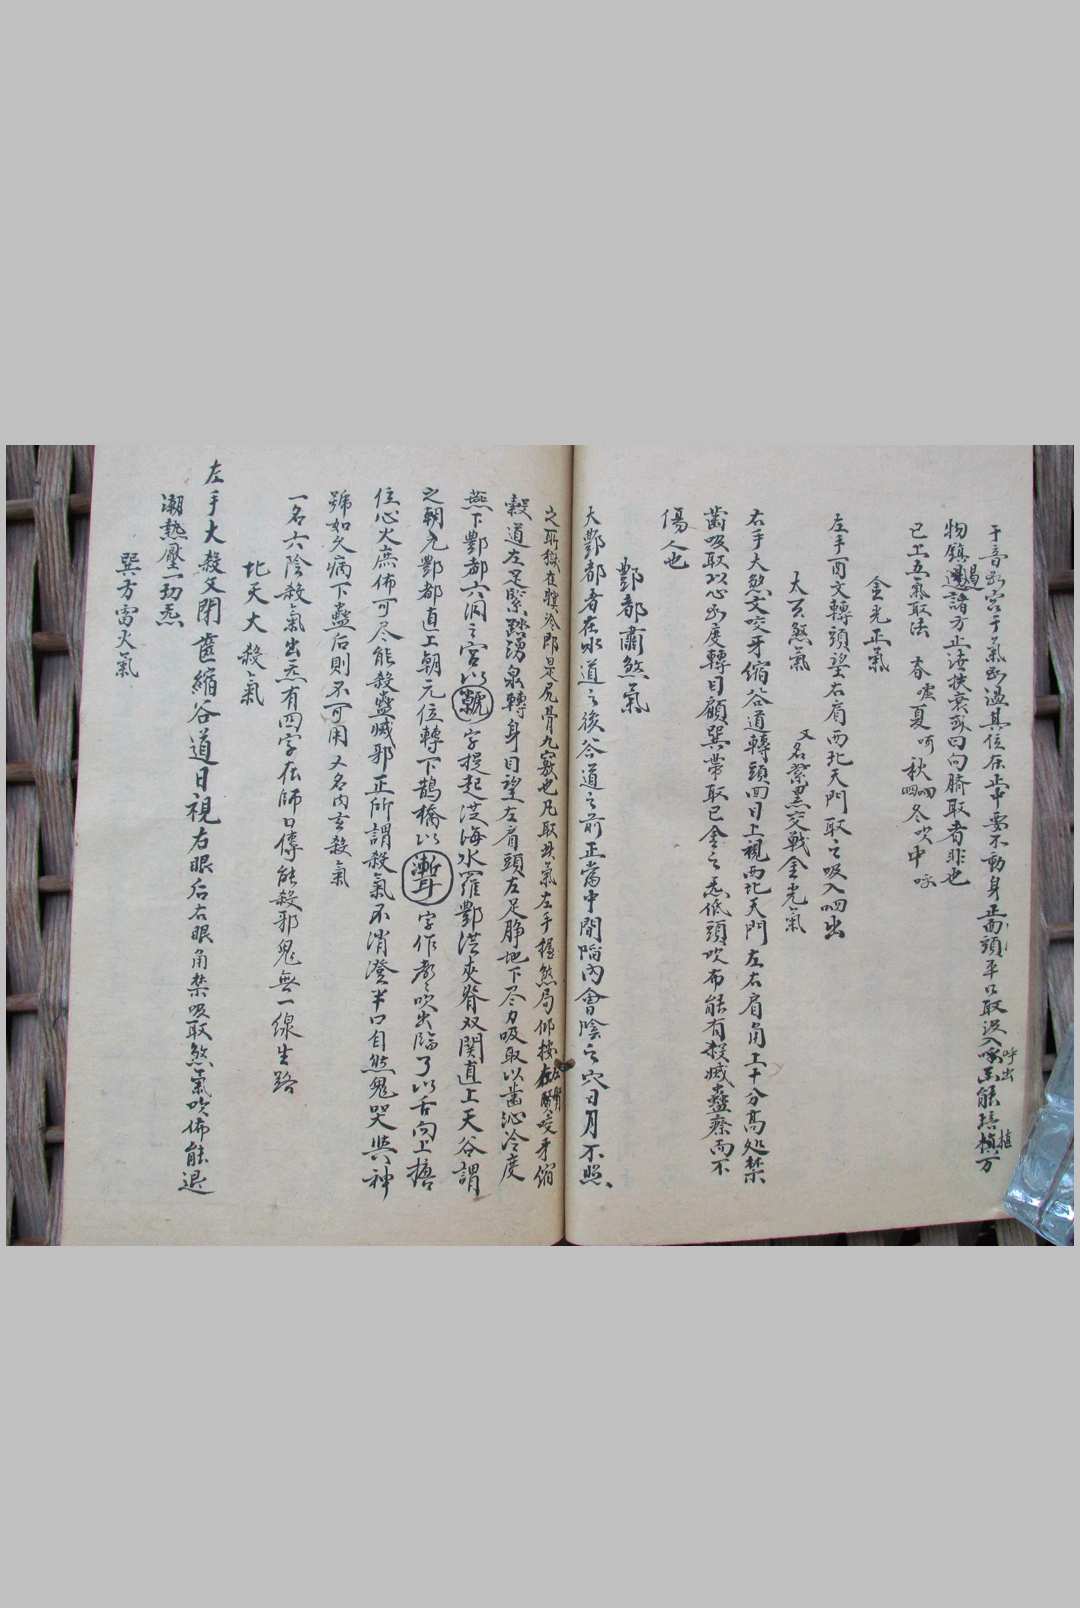 于音 宮于氣 過其位 在中 要不動身正面頭平以取 入 呼出 能培植万
物鎮 遏諸方正法扶衰 曰向臍取者非也
已上五氣取法 春噓夏呵秋呬冬吹中呼
金光正氣
左手酉文轉頭望右肩西北天門取之吸入呬出
大天煞氣 又名 黑交戰金光氣
右手大煞文咬牙縮谷道轉頭回目上視西北天門左右肩角上十分高处禁
齒吸取以心 度轉目顧巽帶取巳金之炁低頭吹布能有殺滅蠱瘵而不
傷人也
酆都肅煞氣
大酆都者在水道之後谷道之前正當中間陷內會陰之穴日月不照
之 獄在 冷即是尻骨九竅也凡取其氣左手握煞局仰按在 咬牙縮
穀道左足緊踏湧泉轉身目望左肩頭左足踭地下尽力吸取以齒沁冷度
燕下酆都六洞之宮以 字提起洪海水羅酆洪夾脊双關直上天谷謂
之朝元酆都直上朝元位轉下鵲橋以 字作 吹出臨了以舌向上搘
住心火庶佈可尽能殺蠱滅邪正所謂殺氣不消澄半口自然鬼哭與神
號如久病下蠱后則不可用 又名内玄殺氣
一名六陰殺氣出炁有四字在師口傳能殺邪鬼無一線生路
北天大殺氣
左手大殺文閉齒縮谷道目視右眼后右眼角禁吸取煞氣吹佈能退
潮熱壓一切炁
巽方雷火氣